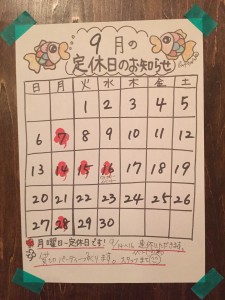 9月の
定休日のお知らせ
日 月 火 水 木 金 土
1 2 3 4 5
6 7 8 9 10 11 12
13 14 15 16 17 18 19
20 21 22 23 24 25 26
27 28 29 30
月曜日→定休日です！
貸切パーティー承ります。スタッフまで